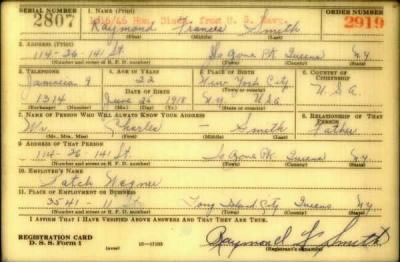 SERIAL NUMBER 1. NAME (Print) ORDER NUMBER
2807 1946/46 Hon. Disch. from U. S. Navy. 2919
Raymond Francis Smith
(First) (Middle) (Last)
2. ADDRESS (Print)
114-26-141 St. So Ozone Pk Queens N.Y
(Number and street or R. F. D. number) (Town) (County) (State)
3. TELEPHONE 4. AGE IN YEARS 5. PLACE OF BIRTH 6. COUNTRY OF CITIZENSHIP
Jamaica 9 22 New York City
1314 June 25 1918 N.Y USA U.S.A.
(Exchange) (Number) (Mo.) (Day) (Yr.) (State or country)
7. NAME OF PERSON WHO WILL ALWAYS KNOW YOUR ADDRESS 8. RELATIONSHIP OF THAT PERSON
Mr Charles Smith Father
(Mr., Mrs., Miss) (First) (Middle) (Last)
9. ADDRESS OF THAT PERSON
114-26-141 St. So Ozone Pk Queens N.Y
(Number and street or R. F. D. number) (Town) (County) (State)
10. EMPLOYER'S NAME
11. PLACE OF EMPLOYMENT OR BUSINESS
3541-11 St. Long Island City Queens N.Y
(Number and street or R. F. D. number) (Town) (County) (State)
I AFFIRM THAT I HAVE VERIFIED ABOVE ANSWERS AND THAT THEY ARE TRUE.
REGISTRATION CARD
D. S. S. Form 1 Raymond F Smith
(Registrant's signature)